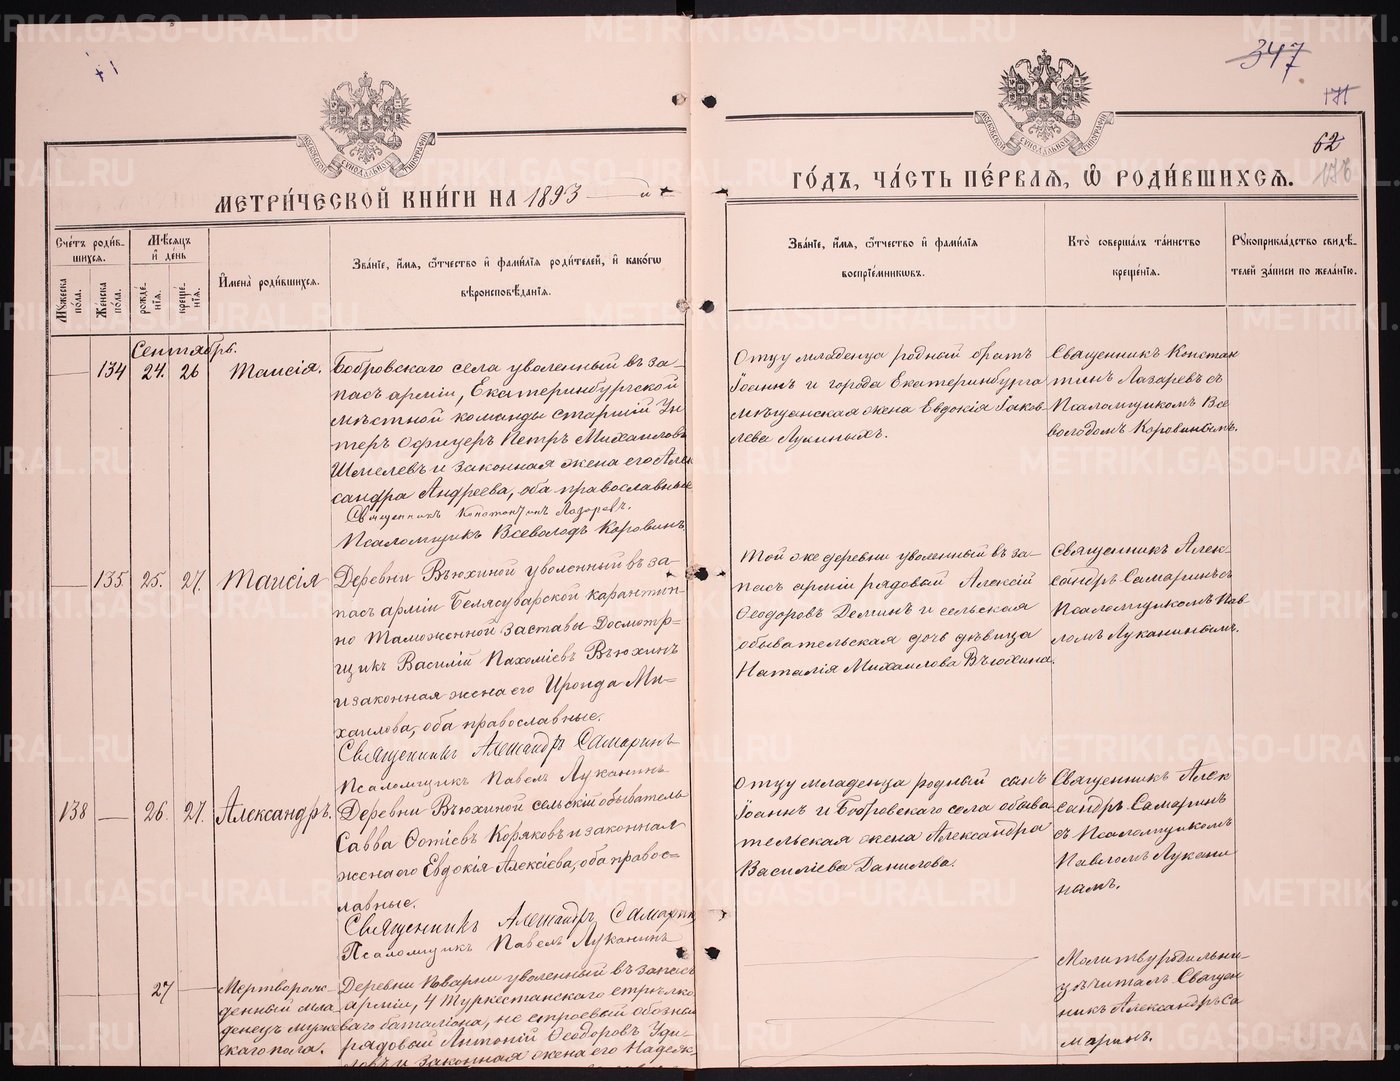 МЕТРИ́ЧЕСКОЙ КНИ́ГИ НА 1893
ГО́ДЪ, ЧА́СТЬ ПЕ́РВАЯ, Ѡ҆ РОДИ́ВШИХСЯ.
347
62
Сче́тъ роди́в-
шихся.
Мѣ́сяцъ
и҆ де́нь
Му́жеска по́ла.
Же́нска по́ла.
рожде́-
нїѧ.
креще́-
нїѧ.
И҆мена̀ роди́вшихся.
Зва́нїе, и҆́мя, ѻ҆́тчество и҆ фами́лїя роди́телей, и҆ како́гѡ
вѣроисповѣ́данїя.
Зва́нїе, и҆́мя, ѻ҆́тчество и҆ фами́лїя
воспрїе́мниковъ.
Кто̀ соверша́лъ та́инство
креще́нїя.
Рукоприкла́дство свидѣ́-
телей за́писи по жела́нїю.
Сентябрь.
134 24. 26 Таисія.
Бобровскаго села уволенный въ за-
пасъ арміи, Екатеринбургской
мѣстной команды старшій Ун
теръ офицеръ Петръ Михаиловъ
Шмелевъ и законная жена его Алек
сандра Андреева, оба православные
Священникъ Константинъ Лазаревъ.
Псаломщикъ Всеволодъ Коровинъ
Отцу младенца родный братъ
Іоаннъ и города Екатеринбурга
мѣщанская жена Евдокія Іаков
лева Луминыхъ.
Священникъ Констан
тинъ Лазаревъ съ
Псаломщикомъ Все
володомъ Коровинымъ.
135 25. 27. Таисія
Деревни Вьюхиной уволенный въ за
пасъ арміи Белясуварской карантин
но таможенной заставы Досмотр=
щикъ Василій Пахоміевъ Вьюхинъ
и законная жена его Ироида Ми=
хаилова, оба православные.
Священникъ Александръ Самаринъ
Псаломщикъ Павелъ Луканинъ
Той же деревни уволенный въ за-
пасъ арміи рядовой Алексій
Ѳеодоровъ Деминъ и сельская
обывательская дочь дѣвица
Наталія Михаилова Вьюхина.
Священникъ Алек-
сандръ Самаринъ съ
Псаломщикомъ Пав-
ломъ Луканинымъ.
138 26. 27. Александръ.
Деревни Вьюхиной сельскій обыватель
Савва Ѳотіевъ Коряковъ и законная
жена его Евдокія Алексіева, оба правос=
лавные.
Священникъ Александръ Самаринъ
Псаломщикъ Павелъ Луканинъ
Отцу младенца родный сынъ
Іоаннъ и Бобровскаго села обыва
тельская жена Александра
Василіева Данилова.
Священникъ Алек
сандръ Самаринъ
съ Псаломщикомъ
Павломъ Лукани
намъ.
27 Мертворож-
денный мла
денецъ муже
скаго пола.
Деревни Поварни уволенный въ запасъ
арміи, 4 Туркестанскаго стрѣлко
ваго баталіона, не строевой обозный
рядовый Антоній Ѳеодоровъ Уди-
ловъ и законная жена его Надеж
Молитву родильни-
цѣ читалъ Священ
никъ Александръ Са
маринъ.